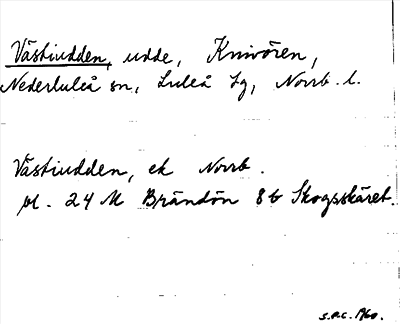 Västiudden, udde, Knivören,
Nederluleå sn, Luleå tg, Norrb. l.
Västiudden, ek Norrb.
bl. 24 M Brändön 8 b Skogsskäret.
S.P.C. 1960.